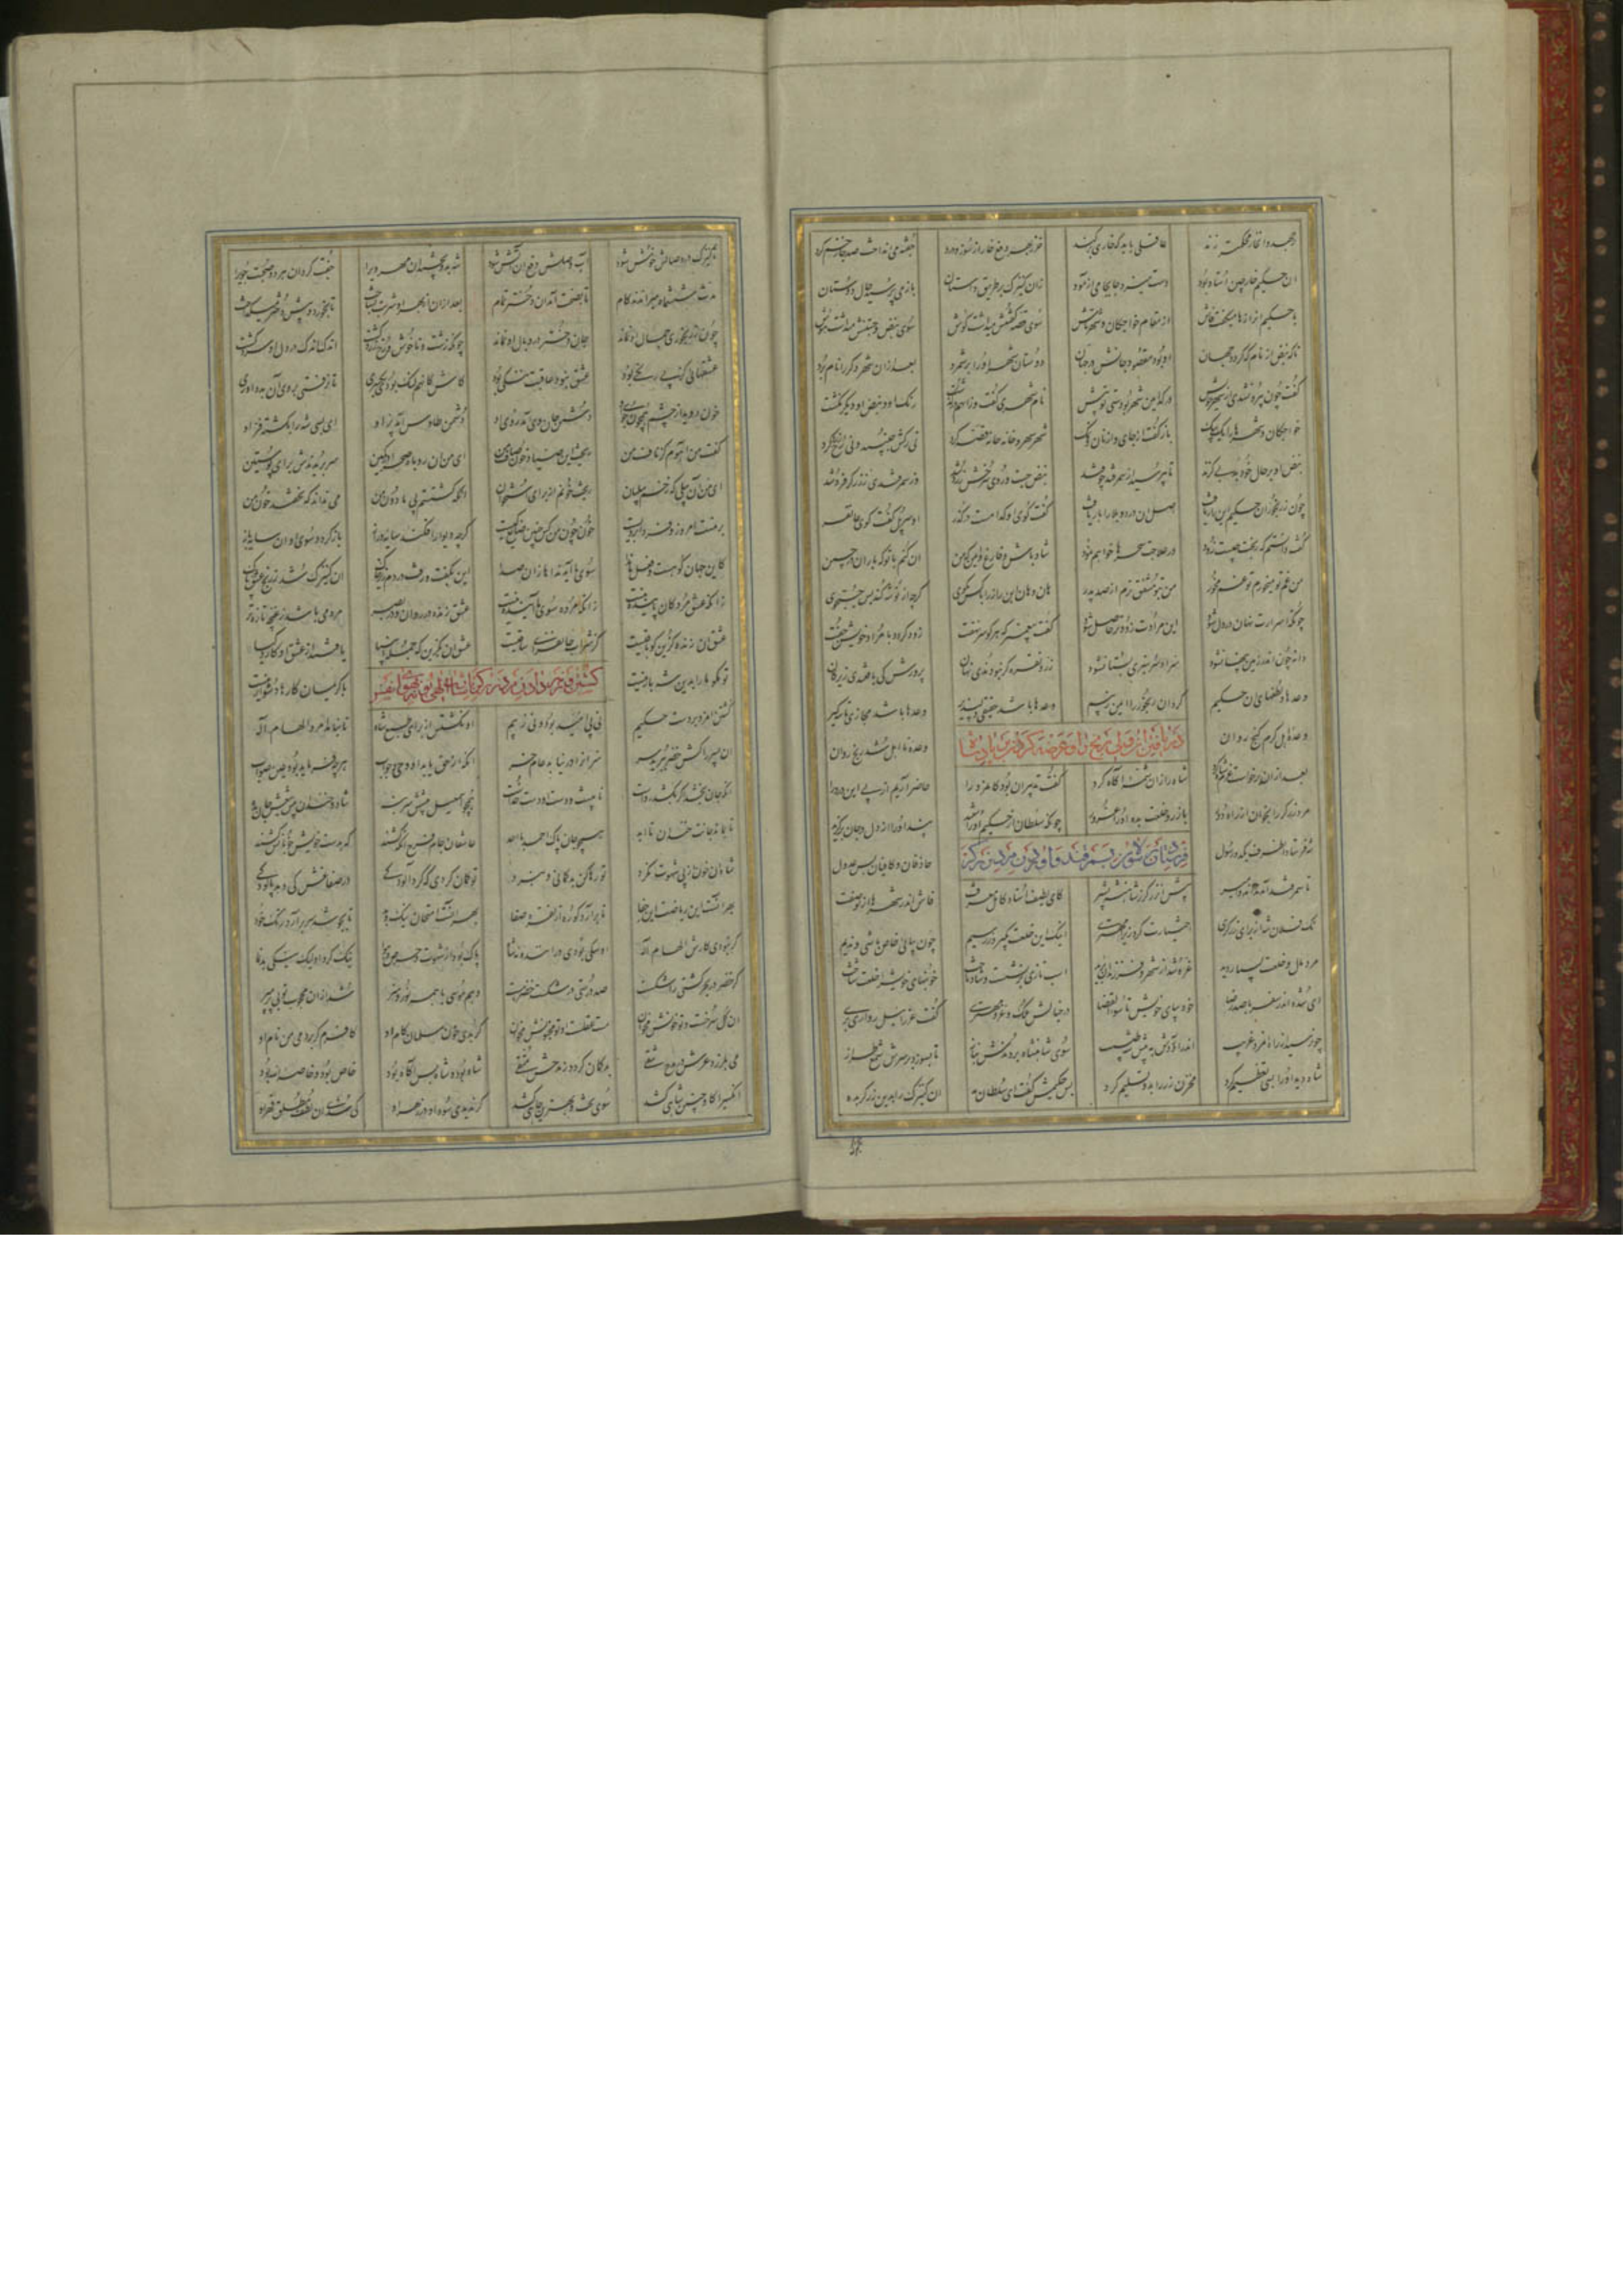 برجهد وان خار محکمتر زند عاقلی باید که خاری برکند خر ز بهر دفع خار از سوز و درد جفته می انداخت صد جا زخم کرد
آن حکیم خارچین استاد بود دست میزد جابجا می آزمود زان کنیزک بر طریق داستان باز می پرسید حال دوستان
با حکیم او رازها میگفت فاش از مقام و خواجگان و شهرتاش سوی قصه گفتنش میداشت گوش سوی نبض و جستنش میداشت هوش
تا که نبض از نام که گردد جهان او بود مقصود جانش در جهان دوستان شهر او را برشمرد بعد ازان شهر دگر را نام برد
گفت چون بیرون شدی از شهر خویش در کدامین شهر بودستی تو بیش نام شهری گفت و زان هم درگذشت رنگ رو و نبض او دیگر نگشت
خواجگان و شهرها را یک بیک باز گفت از جای و از نان و نمک شهر شهر و خانه خانه قصه کرد نی رگش جنبید و نی رخ گشت زرد
نبض او بر حال خود بد بی گزند تا بپرسید از سمرقند چو قند نبض جست و روی سرخش زرد شد کز سمرقندی زرگر فرد شد
چون ز رنجور آن حکیم این راز یافت اصل آن درد و بلا را باز یافت گفت کوی او کدامست در گذر او سر پل گفت و کوی غاتفر
گفت دانستم که رنجت چیست زود در علاجت سحرها خواهم نمود شاد باش و فارغ و ایمن که من آن کنم با تو که باران با چمن
من غم تو میخورم تو غم مخور من بتو مشفق ترم از صد پدر هان و هان این راز را با کس مگوی گرچه از تو شه کند بس جستجوی
چونکه اسرارت نهان در دل شود آن مرادت زودتر حاصل شود گفت پیغمبر که هرکو سر نهفت زود گردد با مراد خویش جفت
دانه چون اندر زمین پنهان شود سر او سرسبزی بستان شود زر و نقره گر نبودندی نهان پرورش کی یافتندی زیر کان
وعدها و لطفهای آن حکیم کرد آن رنجور را ایمن ز بیم وعدها باشد حقیقی دلپذیر وعدها باشد مجازی تاسه گیر
وعده اهل کرم گنج روان وعده نااهل شد رنج روان
دریافتن آن ولی رنج را و عرضه کردن بر پادشاه
بعد ازان برخاست عزم شاه کرد شاه را زان شمه آگاه کرد گفت تدبیر آن بود کان مرد را حاضر آریم از پی این درد را
مرد زرگر را بخوان زان راه دور با زر و خلعت بده او را غرور چونکه سلطان از حکیم آن را شنید پند او را از دل و جان برگزید
فرستادن پادشاه رسولان بسمرقند و آوردن مرد زرگر
شه فرستاد آن طرف یکدو رسول حاذقان و کافیان بس عدول
تا سمرقند آمدند آن دو امیر پیش آن زرگر ز شاهنشه بشیر کای لطیف استاد کامل معرفت فاش اندر شهرها از تو صفت
نک فلان شه از برای زرگری اختیارت کرد زیرا مهتری اینک این خلعت بگیر و زر و سیم چون بیایی خاص باشی و ندیم
مرد مال و خلعت بسیار دید غره شد از شهر و فرزندان برید اسب تازی برنشست و شاد تاخت خونبهای خویش را خلعت شناخت
ای شده اندر سفر با صد رضا خود بپای خویش تا سوء القضا در خیالش ملک و عز و مهتری گفت عزرائیل رو آری بری
چون رسید از راه آن مرد غریب اندر آوردش به پیش شه طبیب سوی شاهنشاه بردندش بناز تا بسوزد بر سر شمع طراز
شاه دید او را بسی تعظیم کرد مخزن زر را بدو تسلیم کرد پس حکیمش گفت کای سلطان مه آن کنیزک را بدین زرگر بده
تا کنیزک در وصالش خوش شود آب وصلش دفع آن آتش شود شه بدو بخشید آن مه روی را جفت کرد آن هر دو صحبت جوی را
مدت ششماه میراندند کام تا بصحت آمد آن دختر تمام بعد ازان از بهر او شربت بساخت تا بخورد و پیش دختر میگداخت
چون ز رنجوری جمال او نماند جان دختر در وبال او نماند چونکه زشت و ناخوش و رخ زرد شد اندک اندک در دل او سرد شد
عشقهایی کز پی رنگی بود عشق نبود عاقبت ننگی بود کاش کان هم ننگ بودی یکسری تا نرفتی بر وی آن بد داوری
خون دوید از چشم همچون جوی او دشمن جان وی آمد روی او دشمن طاوس آمد پر او ای بسی شه را بکشته فر او
گفت من آن آهوم کز ناف من ریخت این صیاد خون صاف من ای من آن روباه صحرا کز کمین سر بریدندش برای پوستین
ای من آن پیلی که زخم پیلبان ریخت خونم از برای استخوان آنکه کشتستم پی مادون من می نداند که نخسبد خون من
بر منست امروز و فردا بر ویست خون چون من کس چنین ضایع کیست گرچه دیوار افکند سایه دراز بازگردد سوی او آن سایه باز
کاین جهان کوهست و فعل ما ندا سوی ما آید نداها را صدا این بگفت و رفت در دم زیر خاک آن کنیزک شد ز رنج و عشق پاک
زانکه عشق مردگان پاینده نیست زانکه مرده سوی ما آینده نیست عشق زنده در روان و در بصر هر دمی باشد ز غنچه تازه تر
عشق آن زنده گزین کو باقیست کز شراب جان فزایت ساقیست عشق آن بگزین که جمله انبیا یافتند از عشق او کار و کیا
تو مگو ما را بدین شه بار نیست با کریمان کارها دشوار نیست
کشتن مرد زرگر باشارت الهی بود نه بهوای نفس
کشتن آن مرد بر دست حکیم نی پی امید بود و نی ز بیم او نکشتش از برای طبع شاه تا نیامد امر و الهام اله
آن پسر را کش خضر ببرید سر سر آنرا در نیابد عام خلق آنکه از حق یابد او وحی و جواب هرچه فرماید بود عین صواب
آنکه جان بخشد اگر بکشد رواست نایبست و دست او دست خداست همچو اسمعیل پیشش سر بنه شاد و خندان پیش تیغش جان بده
تا بماند جانت خندان تا ابد همچو جان پاک احمد با احد عاشقان جام فرح آنگه کشند که بدست خویش خوبانشان کشند
شاه آن خون از پی شهوت نکرد تو رها کن بدگمانی و نبرد تو گمان کردی که کرد آلودگی در صفا غش کی هلد پالودگی
بهر آنست این ریاضت این جفا تا برآرد کوره از نقره جفا بهر آنست امتحان نیک و بد تا بجوشد بر سر آرد زر زبد
گر نبودی کارش الهام اله او سگی بودی دراننده نه شاه پاک بود از شهوت و حرص و هوا نیک کرد او لیک نیک بد نما
گر خضر در بحر کشتی را شکست صد درستی در شکست خضر هست وهم موسی با همه نور و هنر شد از آن محجوب تو بی پر مپر
آن گل سرخست تو خونش مخوان مست عقلست او تو مجنونش مخوان گر بدی خون مسلمان کام او کافرم گر بردمی من نام او
می بلرزد عرش از مدح شقی بدگمان گردد ز مدحش متقی شاه بود و شاه بس آگاه بود خاص بود و خاصه الله بود
آنکسی را کش چنین شاهی کشد سوی تخت و بهترین جاهی کشد گر ندیدی سود او در قهر او کی شدی آن لطف مطلق قهر جو